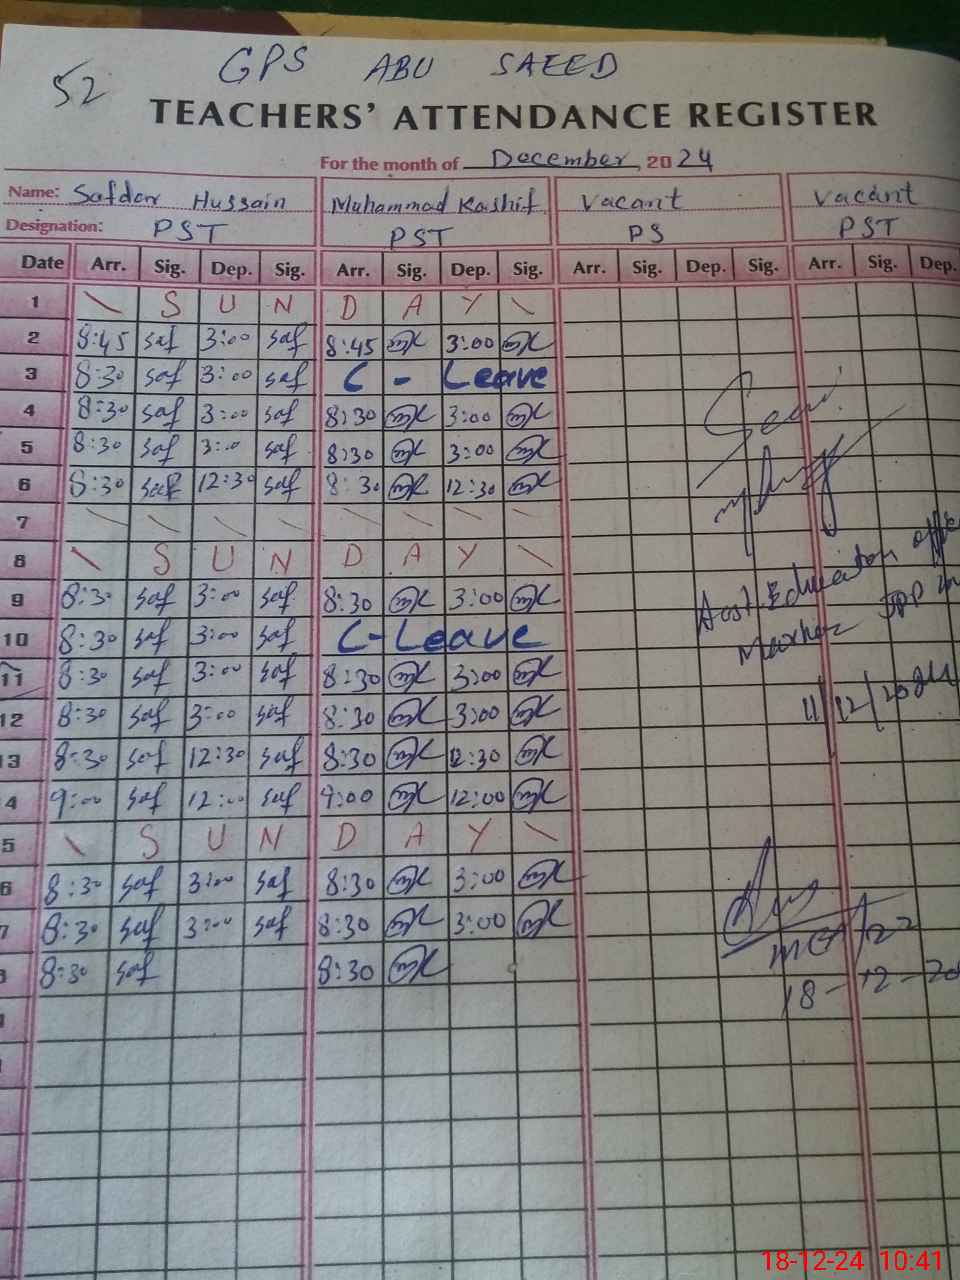 52 GPS ABU SAEED
TEACHERS' ATTENDANCE REGISTER
For the month of December 2024
Name: Safdar Hussain Muhammad Kashif Vacant Vacant
Designation: PST PST PS PST
Date Arr. Sig. Dep. Sig. Arr. Sig. Dep. Sig. Arr. Sig. Dep. Sig. Arr. Sig. Dep.
1 \ S U N D A Y \
2 8:45 saf 3:00 saf 8:45 mk 3:00 mk
3 8:30 saf 3:00 saf C - Leave
4 8:30 saf 3:00 saf 8:30 mk 3:00 mk
5 8:30 saf 3:0 saf 8:30 mk 3:00 mk
6 8:30 saf 12:30 saf 8:30 mk 12:30 mk
7 \ \ \ \ \ \ \ \
8 \ S U N D A Y \
9 8:30 saf 3:00 saf 8:30 mk 3:00 mk
10 8:30 saf 3:00 saf C-Leave
11 8:30 saf 3:00 saf 8:30 mk 3:00 mk
12 8:30 saf 3:00 saf 8:30 mk 3:00 mk
13 8:30 saf 12:30 saf 8:30 mk 12:30 mk
4 9:00 saf 12:00 saf 9:00 mk 12:00 mk
5 \ S U N D A Y \
6 8:30 saf 3:00 saf 8:30 mk 3:00 mk
7 8:30 saf 3:00 saf 8:30 mk 3:00 mk
8:30 saf 8:30 mk
Education
11/12/2024
18-12-20
18-12-24 10:41